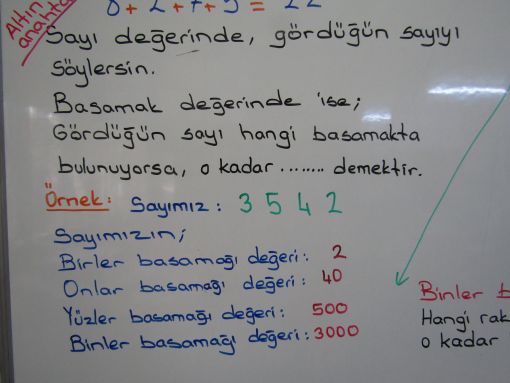 8+2+7+5 = 22
Altın
anahta
Sayı değerinde, gördüğün sayıyı
söylersin.
Basamak değerinde ise;
Gördüğün sayı hangi basamakta
bulunuyorsa, o kadar ........ demektir.
Örnek: Sayımız : 3 5 4 2
Sayımızın;
Birler basamağı değeri : 2
Onlar basamağı değeri : 40
Yüzler basamağı değeri : 500
Binler basamağı değeri : 3000
Binler b
Hangi rak
o kadar